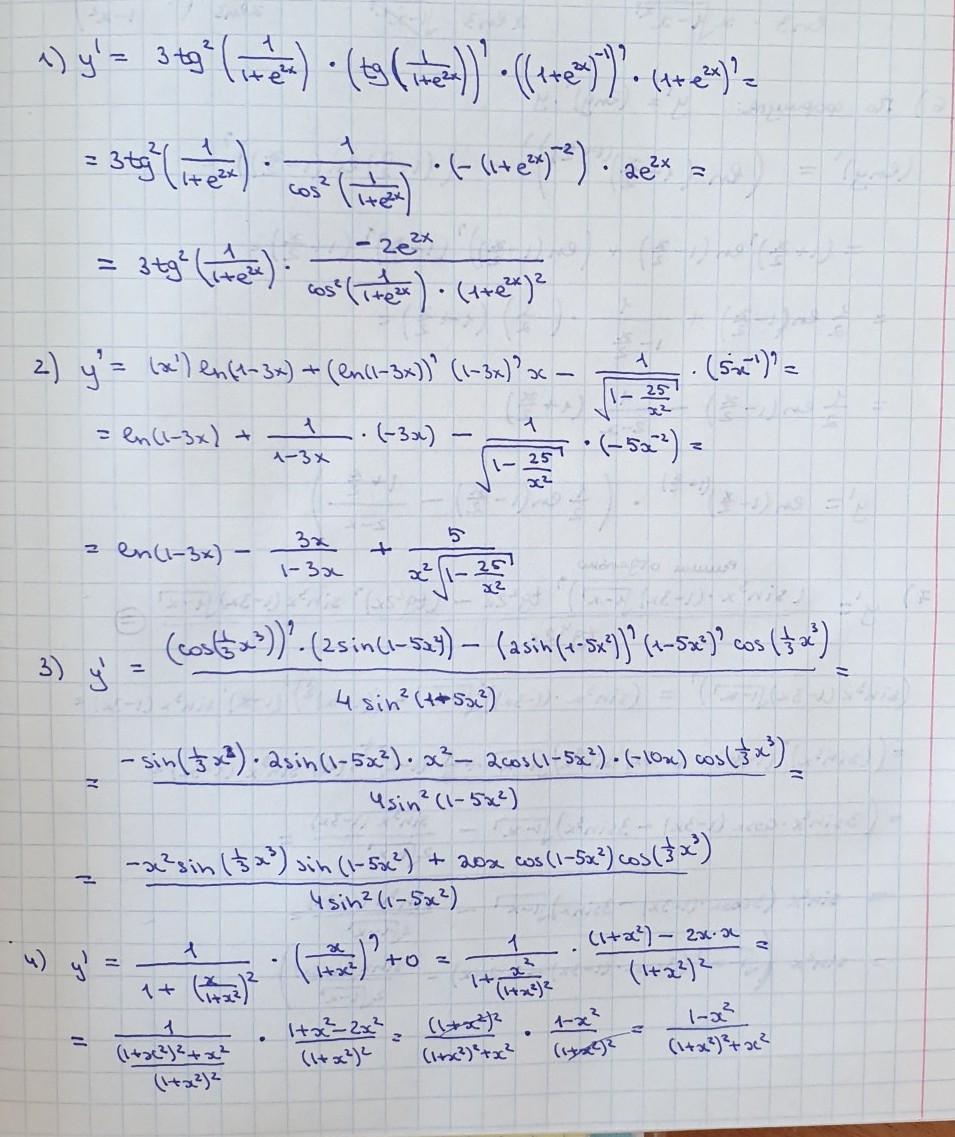 1) y' = 3tg²(1/(1+e^{2x})) · (tg(1/(1+e^{2x})))' · ((1+e^{2x})^{-1})' · (1+e^{2x})' =
= 3tg²(1/(1+e^{2x})) · 1/(cos²(1/(1+e^{2x}))) · (-(1+e^{2x})^{-2}) · 2e^{2x} =
= 3tg²(1/(1+e^{2x})) · (-2e^{2x})/(cos²(1/(1+e^{2x})) · (1+e^{2x})²)
2) y' = (x') ln(1-3x) + (ln(1-3x))' (1-3x)' x - 1/√(1 - 25/x²) · (5x^{-1})' =
= ln(1-3x) + 1/(1-3x) · (-3x) - 1/√(1 - 25/x²) · (-5x^{-2}) =
= ln(1-3x) - 3x/(1-3x) + 5/(x²√(1 - 25/x²))
3) y' = ((cos(1/3 x³))' · (2sin(1-5x²)) - (2sin(1-5x²))' (1-5x²)' cos(1/3 x³))/(4 sin²(1-5x²)) =
= (-sin(1/3 x³) · 2sin(1-5x²) · x² - 2cos(1-5x²) · (-10x) cos(1/3 x³))/(4sin²(1-5x²)) =
= (-x² sin(1/3 x³) sin(1-5x²) + 20x cos(1-5x²) cos(1/3 x³))/(4sin²(1-5x²))
4) y' = 1/(1 + (x/(1+x²))²) · (x/(1+x²))' + 0 = 1/(1 + x²/(1+x²)²) · ((1+x²) - 2x·x)/(1+x²)² =
= 1/(((1+x²)²+x²)/(1+x²)²) · (1+x²-2x²)/(1+x²)² = (1+x²)²/((1+x²)²+x²) · (1-x²)/(1+x²)² = (1-x²)/((1+x²)²+x²)